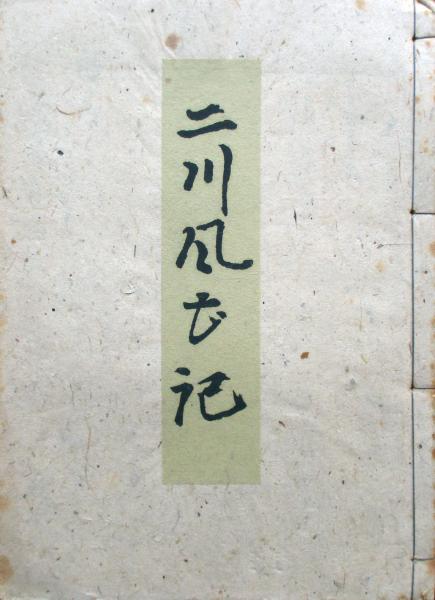 二川風土記